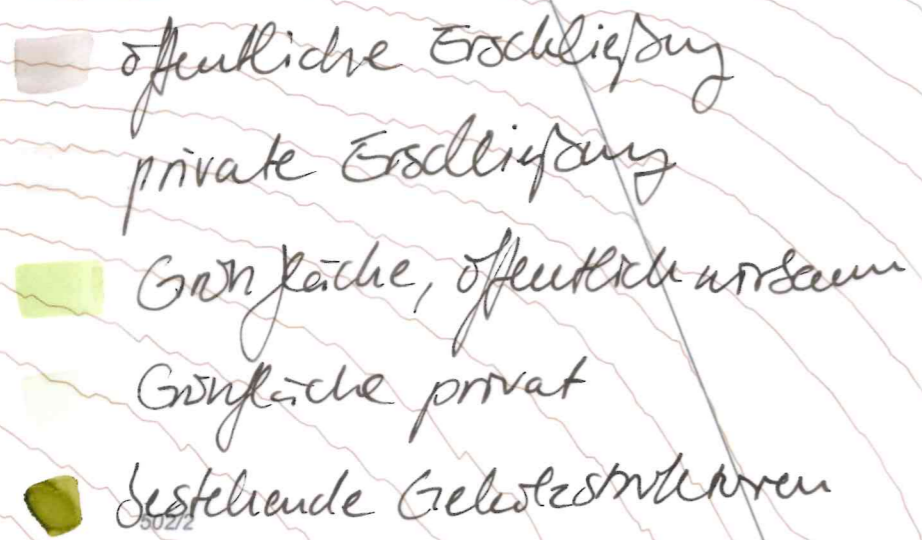 öffentliche Erschließung
private Erschließung
Grünfläche, öffentlich wirksam
Grünfläche privat
bestehende Gehölzstrukturen
502/2